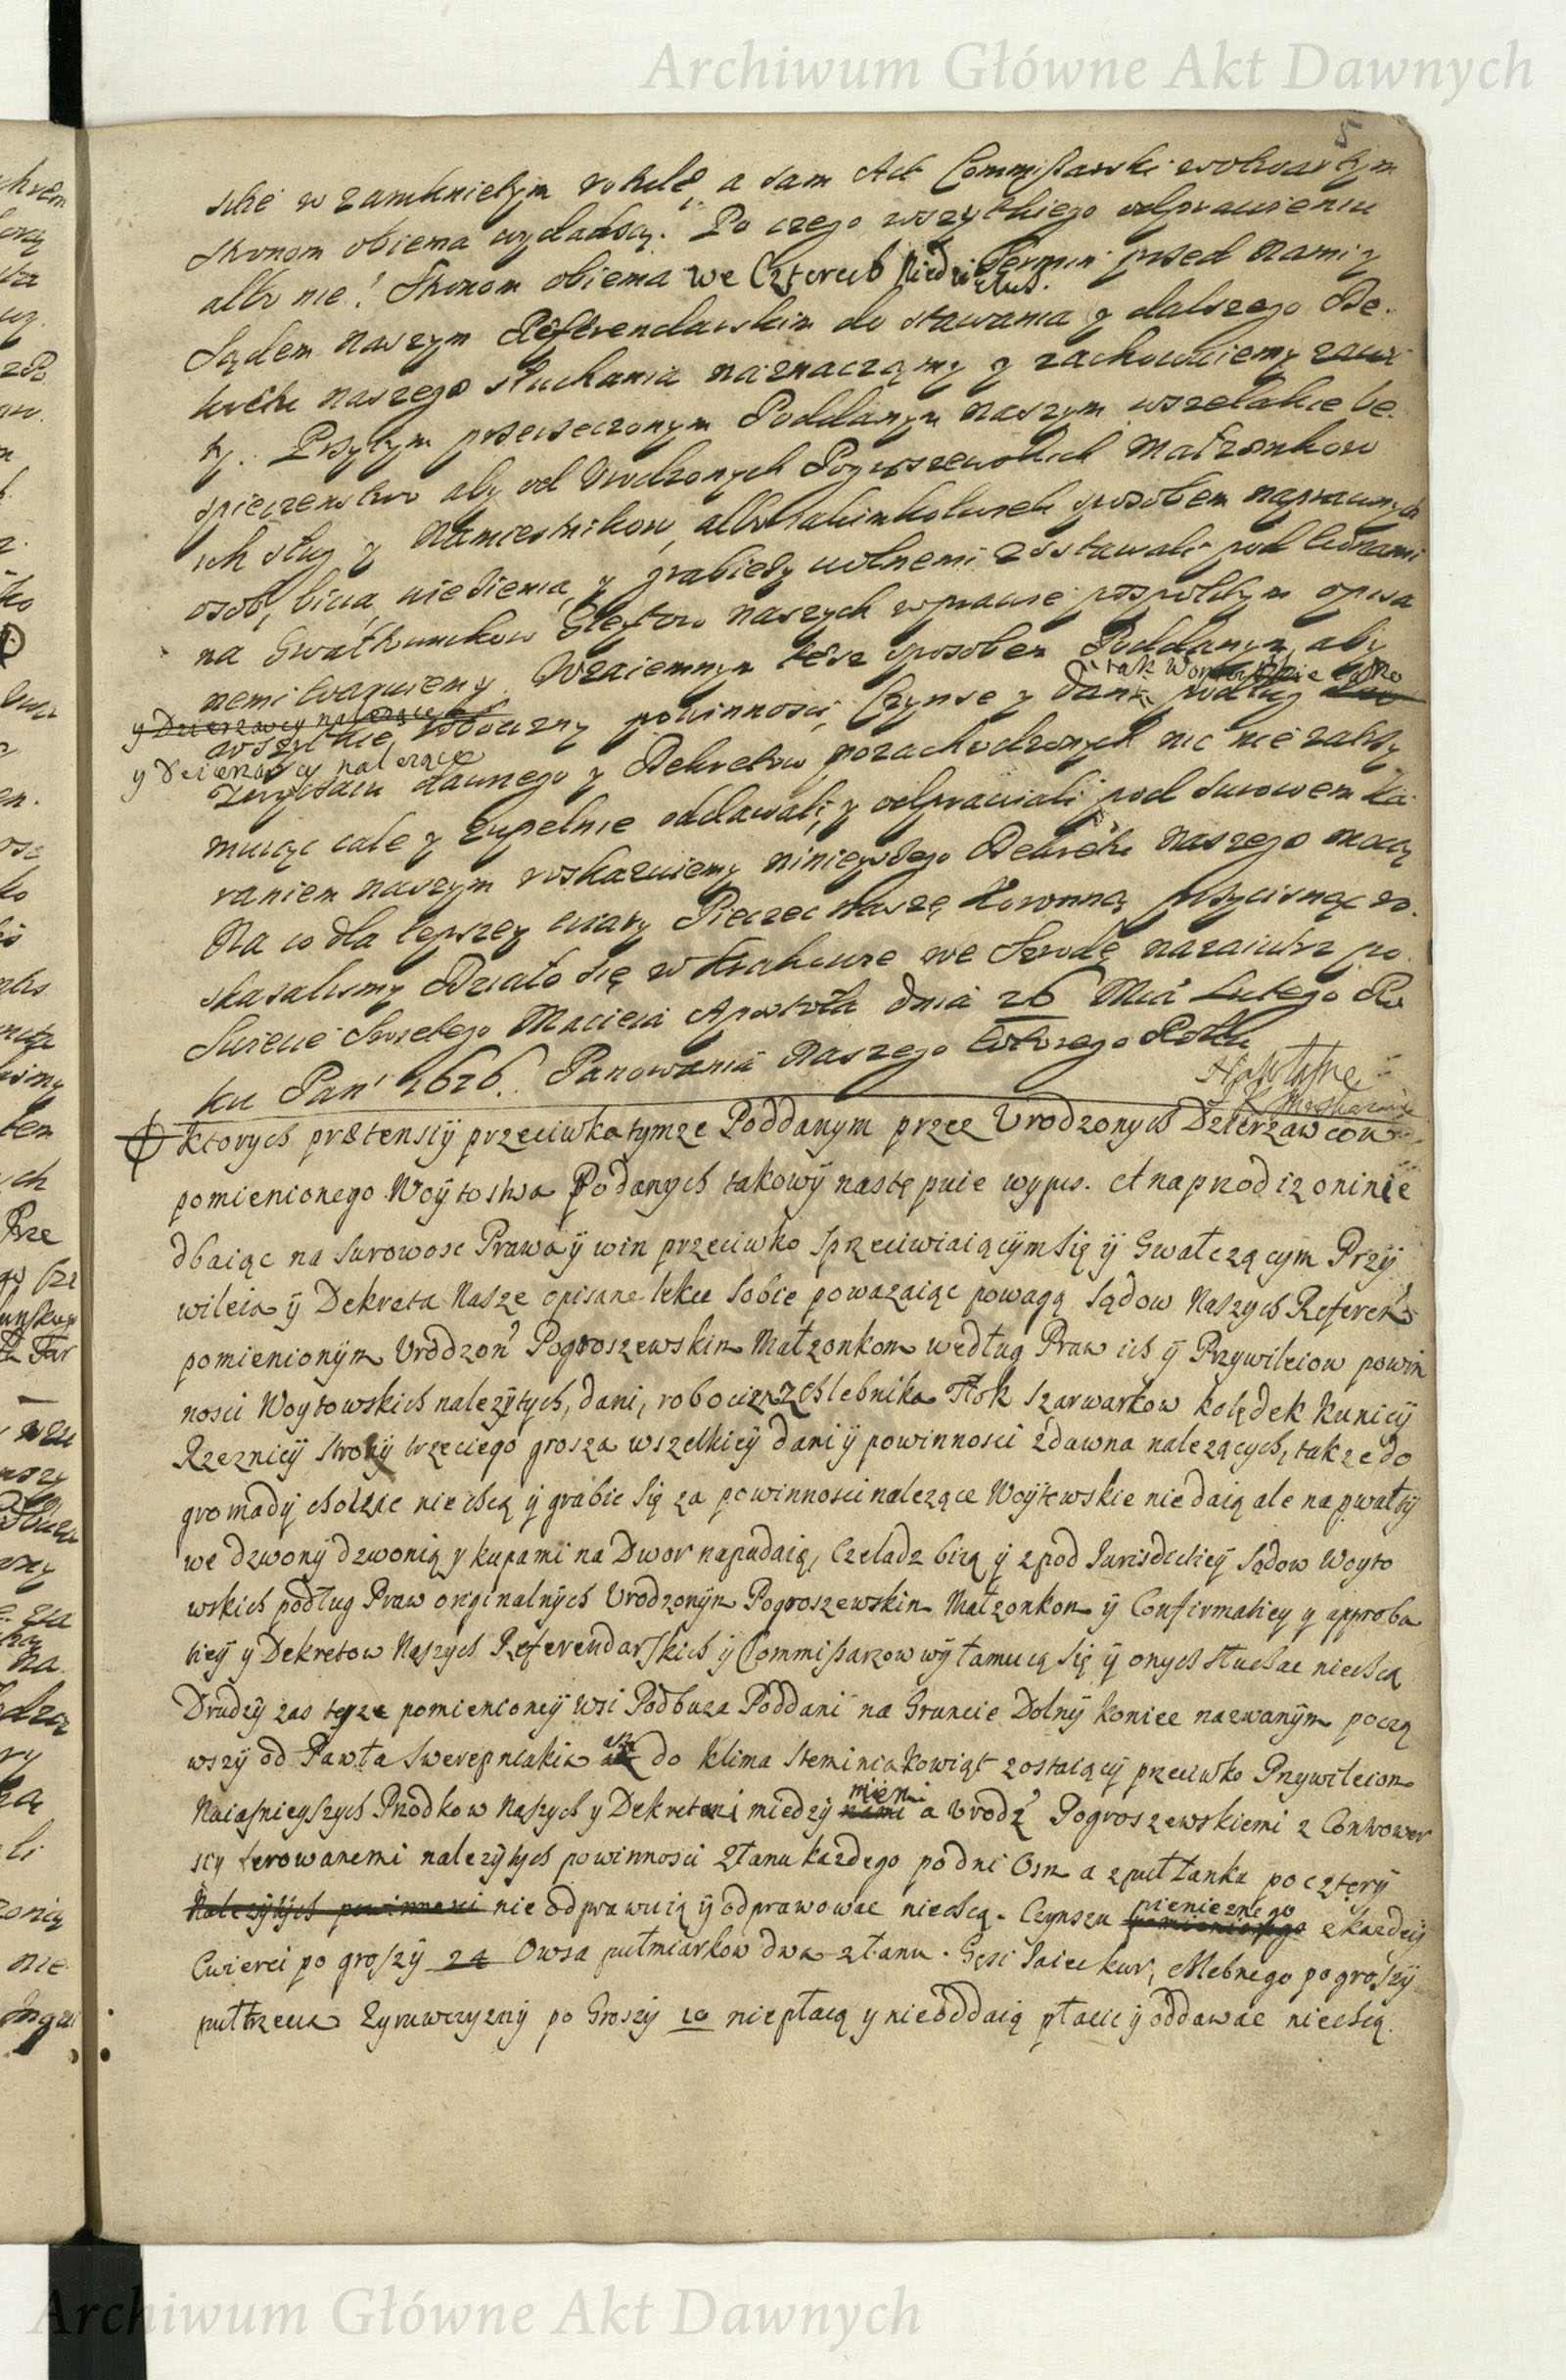 Archiwum Główne Akt Dawnych
5
skie w zamknietym rotule, a sam Act Commissarski w otwartym
stronom obiema wydadzą. Po czego wszytkiego odprawieniu
albo nie! Stronom obiema we Czterech Niedzielach. Termin przed nami y
Sądem naszym Referendarskim do stawania y dalszego De-
kretu naszego słuchania naznaczamy y zachowuiemy zawi
ty. Przytym przerzeczonym Poddanym naszym wszelakie be
spieczenstwo aby od Urodzonych Pogroszewskich Małzonkow
ich sług y Namiestnikow, albo iakimkolwiek sposobem naprawnych
osob, bicia, więzienia, y grabieży wolnemi zostawali pod winami
na Gwałtownikow Gleytow naszych w prawie pospolitym opisa
nemi waruiemy. Wzaiemnym też sposobem Poddanym, aby
tak Woytowskie iako
y Dzierzawcy nalezące
wszytkie robocizny powinnosci, Czynsze y dani podług
y Dzierzawcy nalezące
zwyczaiu dawnego y Dekretow pozachodzonych nic nie zatrzy
muiąc cale y zupełnie oddawali, y odprawiali pod surowem ka
raniem naszym roskazuiemy ninieyszego Dekretu naszego mocą
Na co dla lepszey wiary Pieczec naszę Koronną przycisnąc ro
skazalismy Działo się w Krakowie we Srodę nazaiutrz po
Swiecie Swietego Macieia Apostoła dnia 26 Mca Lutego Ro
ku Pan 1676. Panowania Naszego Wtorego Roku
ktorych prætensiy przeciwko tymze Poddanym przez Urodzonych Dzierzawcow
pomienionego Woytostwa Podanych takowy nastę puie wypis. A naprzod iz oni nie
dbaiąc na surowosc Prawa y win przeciwko sprzeciwiaiącym się y Gwałczącym Przy
wileia y Dekreta Nasze opisane lekce sobie powazaiąc powagą sądow Naszych Referen
pomienionym Urodzon Pogroszewskim Małzonkom według Praw ich y Przywileiow powin
nosci Woytowskich nalezytych, dani, robocizn, Chlebnika Tłok szarwarkow kolędek kunicy
Rzeznicy strony trzeciego grosza wszelkiey dani y powinnosci zdawna nalezących, takze do
gromady chodzic niechcą y grabic się za powinnosci nalezące Woytowskie nie daią ale na gwałty
we dzwony dzwonią y kupami na Dwor napadaią, Czeladz biią y zpod Iurisdictiey Sądow Woyto
wskich podług Praw originalnych Urodzonym Pogroszewskim Małzonkom y Confirmatiey y approba
tiey y Dekretow Naszych Referendarskich y Commissarzow wyłamuią się y onych słuchac niechcą
Drudzy zas teyze pomienioney wsi Podbuza Poddani na Gruncie Dolny koniec nazwanym począ
wszy od Pawła Swerepniakia asz do Klima Steminiakowiąt zostaiący przeciwko Przywileiom
niemi
Naiasnieyszych Przodkow Naszych y Dekretami miedzy nami a Urodz Pogroszewskiemi z Contrower
siy ferowanemi nalezytych powinnosci z Łanu kazdego po dni Osm a zpuł Łanku po cztery
pienieznego
Nalezytych powinnosci nie odprawuią y odprawowac niechcą. Czynszu pomienionego z kazdey
Cwierci po groszy 24 Owsa pułmiarkow dwa z Łanu. Gęsi Iaiec kur, chlebnego po groszy
pułtrzecia Zyrowczyzny po Groszy 10 niepłacą y nieoddaią płacic y oddawac niechcą.
Archiwum Główne Akt Dawnych